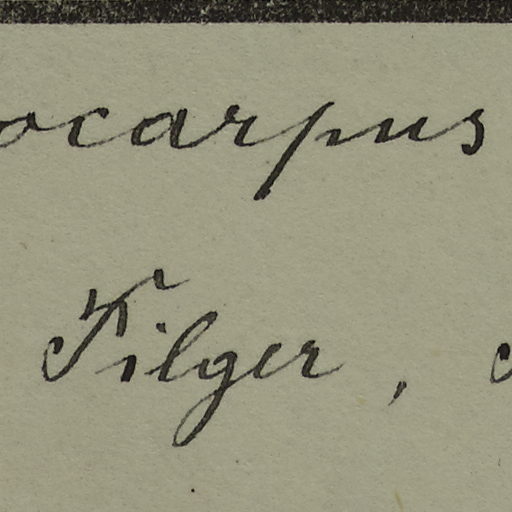 ocarpus
Pilger,